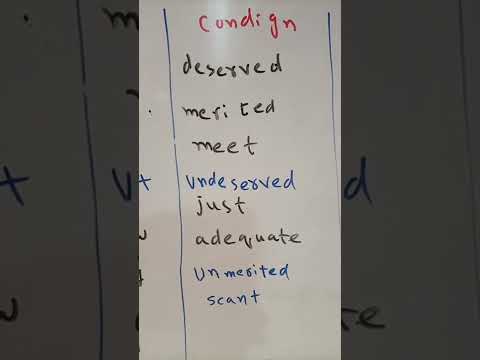 Condign
deserved
merited
meet
undeserved
just
adequate
unmerited
scant